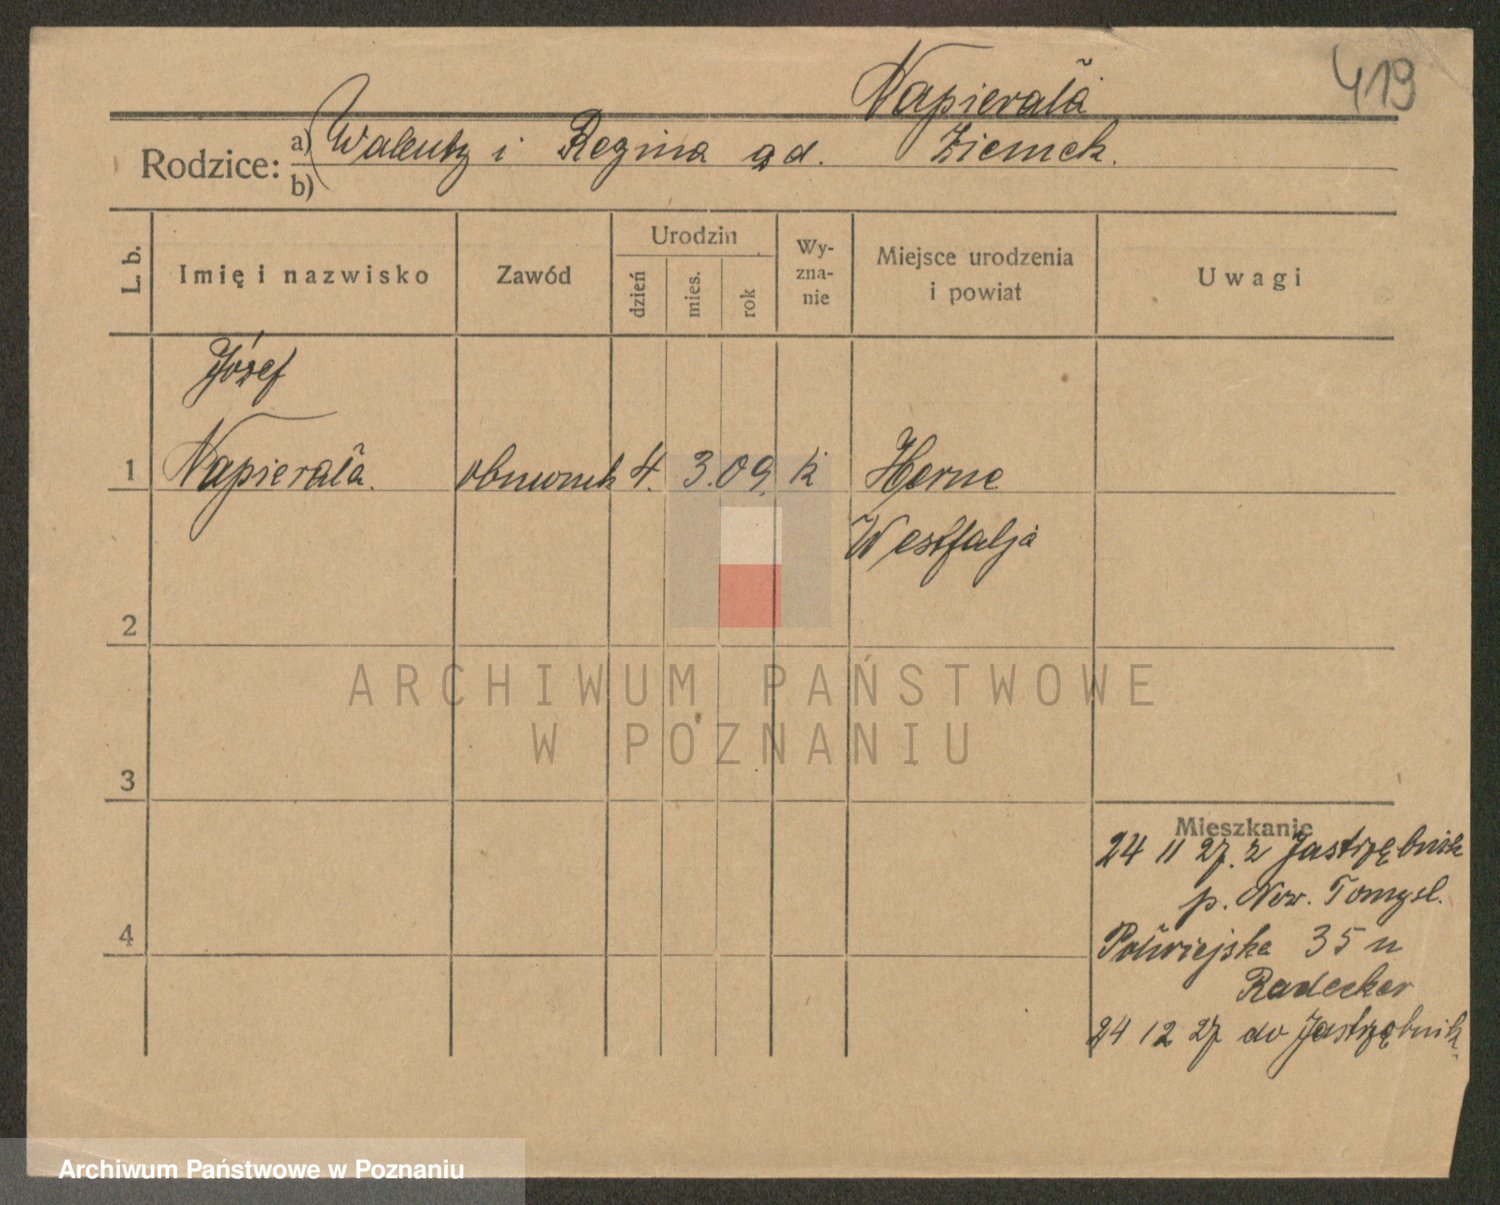 419
Napierała
Rodzice: a) Walenty i Regina zd. Ziemek.
b)
L. b.
Imię i nazwisko
Zawód
Urodzin
dzień
mies.
rok
Wy-
zna-
nie
Miejsce urodzenia
i powiat
Uwagi
Józef
1 Napierała. 4. 3. 09. k Herne
Westfalja
2
ARCHIWUM PAŃSTWOWE
W POZNANIU
3
Mieszkanie
24 11 27. z Jastrzębnik
p. Now. Tomyśl.
4
Półwiejska 35 u
Radecker
24 12 27 do Jastrzębnik.
Archiwum Państwowe w Poznaniu